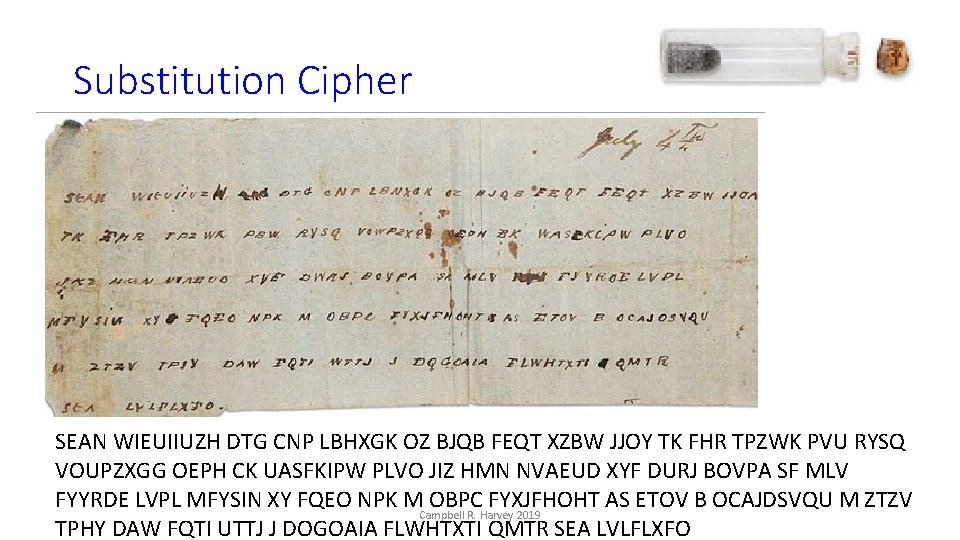 Substitution Cipher
July 4th
SEAN WIEUIIUZH DTG CNP LBHXGK OZ BJQB FEQT FEQT XZBW JJOA
TK FHR TPZWK PBW RYSQ VOWPZXGG OEPH EK WASFKCPW PLVO
JKZ HMN NVAEUD XYE DWRJ BOVPA SF MLV FYYRDE LVPL
MFYSIN XY FQEO NPK M OBPC FYXJFHOHT AS ETOV B OCAJOSVQU
M ZTZV TPSY DAW FQTI WTTJ J DQGOAIA FLWHTXTI QMTR
SEA LVLFLXFO.
SEAN WIEUIIUZH DTG CNP LBHXGK OZ BJQB FEQT XZBW JJOY TK FHR TPZWK PVU RYSQ
VOUPZXGG OEPH CK UASFKIPW PLVO JIZ HMN NVAEUD XYF DURJ BOVPA SF MLV
FYYRDE LVPL MFYSIN XY FQEO NPK M OBPC FYXJFHOHT AS ETOV B OCAJDSVQU M ZTZV
Campbell R. Harvey 2019
TPHY DAW FQTI UTTJ J DOGOAIA FLWHTXTI QMTR SEA LVLFLXFO